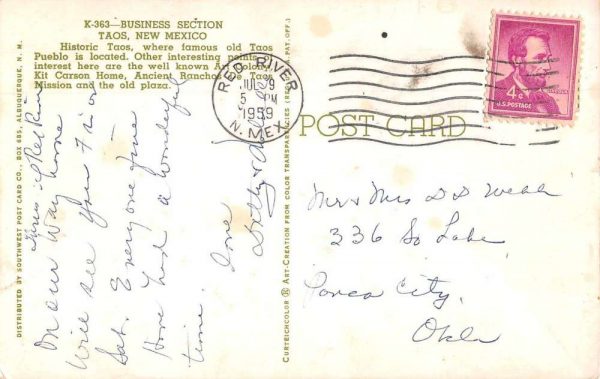 K-363—BUSINESS SECTION
TAOS, NEW MEXICO
Historic Taos, where famous old Taos
Pueblo is located. Other interesting points of
interest here are the well known Art Colony,
Kit Carson Home, Ancient Ranchos de Taos
Mission and the old plaza.
DISTRIBUTED BY SOUTHWEST POST CARD CO., BOX 685, ALBUQUERQUE, N. M.
On our way home
Will see you Fri or
Sat. Everyone fine
Have had a wonderful
time.
Love
CURTEICHCOLOR ® ART-CREATION FROM COLOR TRANSPARENCIES (REG. U.S.A. PAT. OFF.)
RED RIVER
JUL 9
5 PM
1959
N. MEX.
POST CARD
4¢
U.S. POSTAGE
Mr & Mrs D D Webb
336 So Lake
Ponca City,
Okla